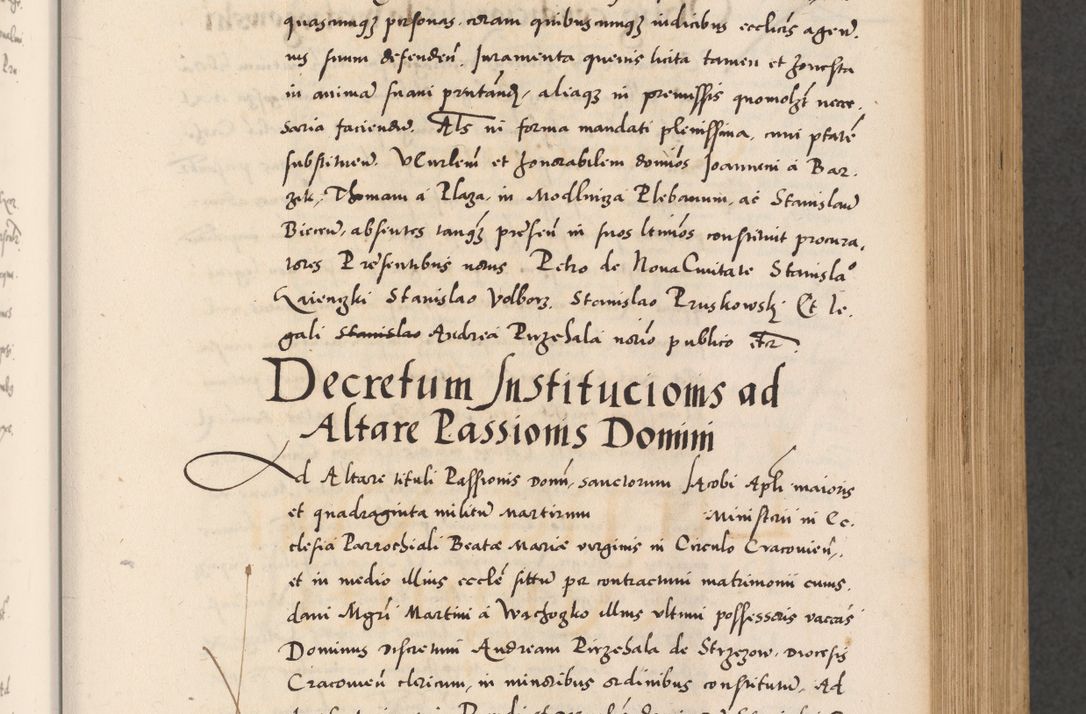 quascunqz personas, coram quibuscunqz iudicibus ecclesiasticis agen.
nis suum defenden̄. Juramenta quevis licita tamen et honesta
in animā suam prestandj, aliaqz in premissis quomolȝ nece.
saria faciendū. Als in forma mandati plenissima, cum ptatē
substituen̄. VCurlem̄ et honorabilem domīos Joannem á Bar.
zik, Thomam á Plaza, in Modlniza Plebanum, ac Stanislaū
Biecen̄, absentes tanqz presen̄ in suos ltimos constituit procura.
tores Presentibus notis, Petro de NovaCivitate Stanislaº
Kaienczki Stanislao Volborz, Stanislao Pruskowskj Et le.
gali Stanislao Andrea Pirzehala norio publico etc.
Decretum Institucionis ad
Altare Passionis Domini
Ad Altare tituli Passionis Domī, sanctorum Jacobi Apłi maioris
et quadraginta militū Martirum Ministerii in Ec.
clesia Parrochiali Beatæ Mariæ virginis in Circulo Cracovien̄.
et in medio illius ecclē sittū per contractum matrimonii cuius.
dam Mgrī Martini á Wachogko illius ultimi possessoris vacan̄
Dominus discretum Andream Pirzehala de Strzezow, Diocesis
Cracovien̄ clericum, in minoribus ordinibus constitutū, Ad